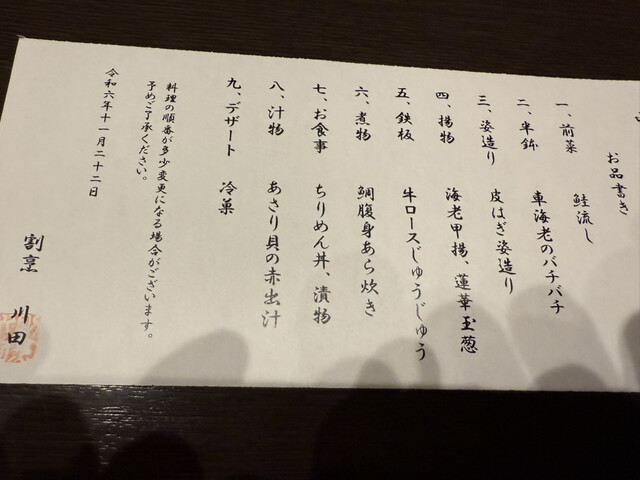 お品書き
一、前菜 鮭流し
二、半鉢 車海老のバチバチ
三、姿造り 皮はぎ姿造り
四、揚物 海老甲揚、蓮華玉葱
五、鉄板 牛ロースじゅうじゅう
六、煮物 鯛腹身あら炊き
七、お食事 ちりめん丼、漬物
八、汁物 あさり貝の赤出汁
九、デザート 冷菓
料理の順番が多少変更になる場合がございます。
予めご了承ください。
令和六年十一月二十二日
割烹 川田